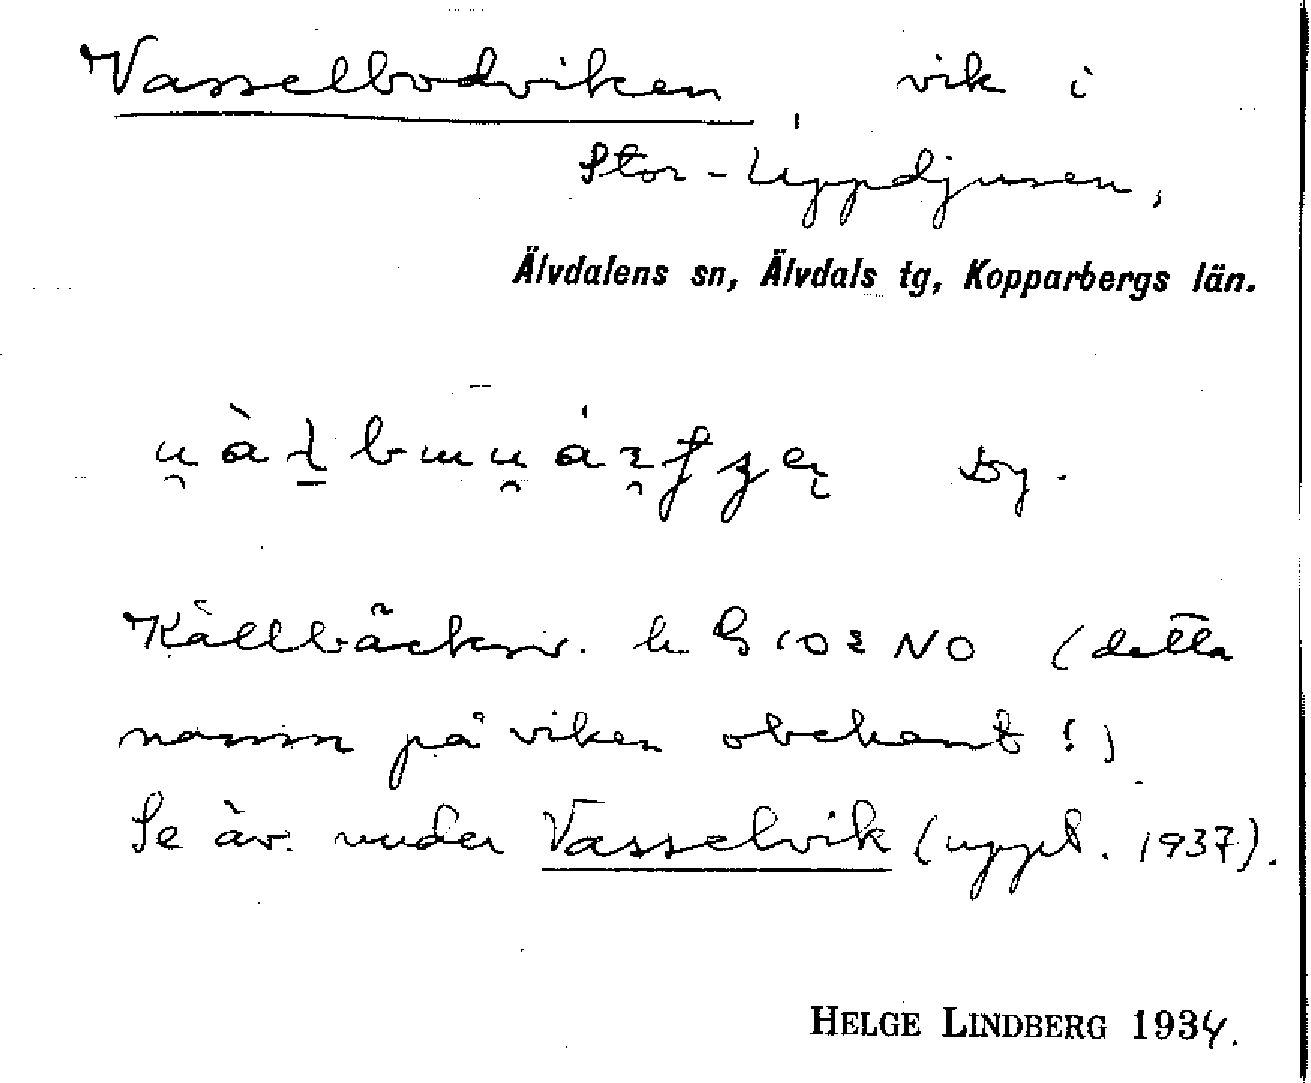 Vasselbodviken, vik i
Stor-Uppdjusen,
Älvdalens sn, Älvdals tg, Kopparbergs län.
by.
Källbäcksv. k G 102 NO (detta
namn på viken obekant!)
Se äv. under Vasselvik (uppt. 1937).
HELGE LINDBERG 1934.